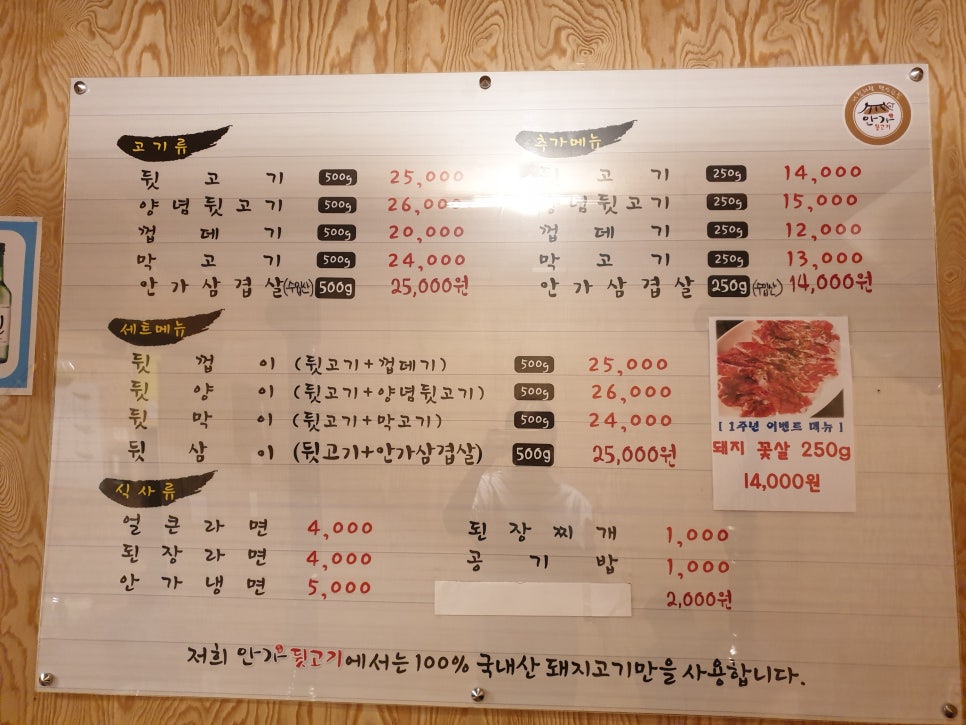 고기류
뒷고기 500g 25,000
양념뒷고기 500g 26,000
껍데기 500g 20,000
막고기 500g 24,000
안가삼겹살(수입산) 500g 25,000원
추가메뉴
고기 250g 14,000
념뒷고기 250g 15,000
껍데기 250g 12,000
막고기 250g 13,000
안가삼겹살 250g (수입산) 14,000원
세트메뉴
뒷껍이 (뒷고기+껍데기) 500g 25,000
뒷양이 (뒷고기+양념뒷고기) 500g 26,000
뒷막이 (뒷고기+막고기) 500g 24,000
뒷삼이 (뒷고기+안가삼겹살) 500g 25,000원
[ 1주년 이벤트 메뉴 ]
돼지 꽃살 250g
14,000원
식사류
얼큰라면 4,000
된장라면 4,000
안가냉면 5,000
된장찌개 1,000
공기밥 1,000
2,000원
저희 안가뒷고기에서는 100% 국내산 돼지고기만을 사용합니다.
안가
뒷고기